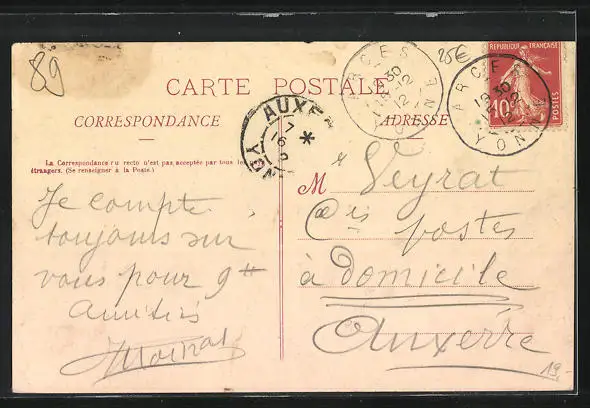 89
25€
REPUBLIQUE FRANÇAISE
10c
ARCES
19 30
12
YONNE
ARCES
19 30
12
YONNE
CARTE POSTALE
AUXE
CORRESPONDANCE
ADRESSE
La Correspondance au recto n'est pas acceptée par tous les
étrangers. (Se renseigner à la Poste.)
M Veyrat
Cis postes
à domicile
Auxerre
Je compte
toujours sur
vous pour
Amitiés
19-